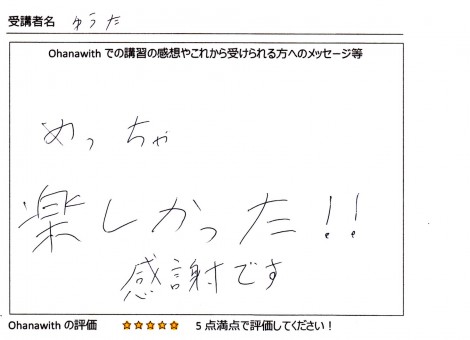 受講者名 ゆうた
Ohanawith での講習の感想やこれから受けられる方へのメッセージ等
めっちゃ
楽しかった!!
感謝です
Ohanawith の評価 ☆☆☆☆☆ 5 点満点で評価してください！